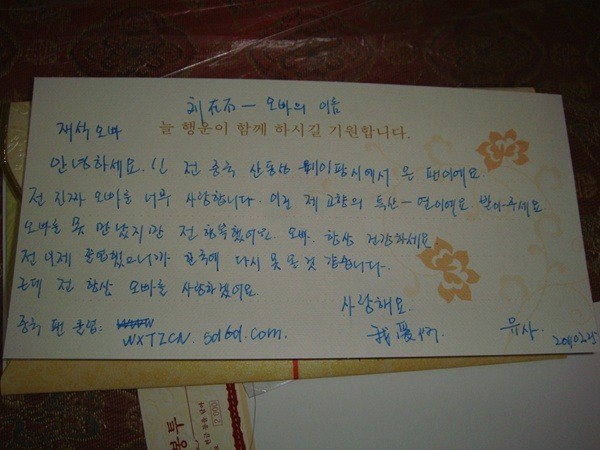 刘在石 — 오빠의 이름
재석오빠 늘 행운이 함께 하시길 기원합니다.
안녕하세요. 전 중국 산동성 웨이팡시에서 온 팬이에요.
전 진짜 오빠를 너무 사랑합니다. 이건 제 고향의 특산 — 연이에요. 받아주세요.
오빠를 못 만났지만 전 행복했어요. 오빠, 항상 건강하세요
전 이제 졸업했으니까 한국에 다시 못 올 것 같습니다.
근데 전 항상 오빠를 사랑하겠어요.
사랑해요.
중국 팬 클럽: WXTZCN.5d6d.com.
我愛你. 유사.
봉투